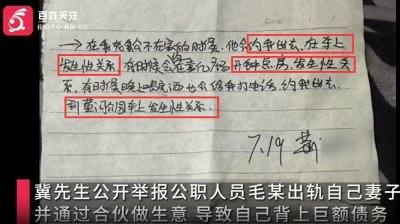 百姓关注
你的关心 我的关注
→在我老公不在家的时候,他会约我出去,在车上
发生性关系,有时候会在宾馆开钟点房,发生性关
系,有时候晚上喝完酒也会给我打电话,约我出去,
到 车上发生性关系.
7.19
冀先生公开举报公职人员毛某出轨自己妻子
并通过合伙做生意 导致自己背上巨额债务